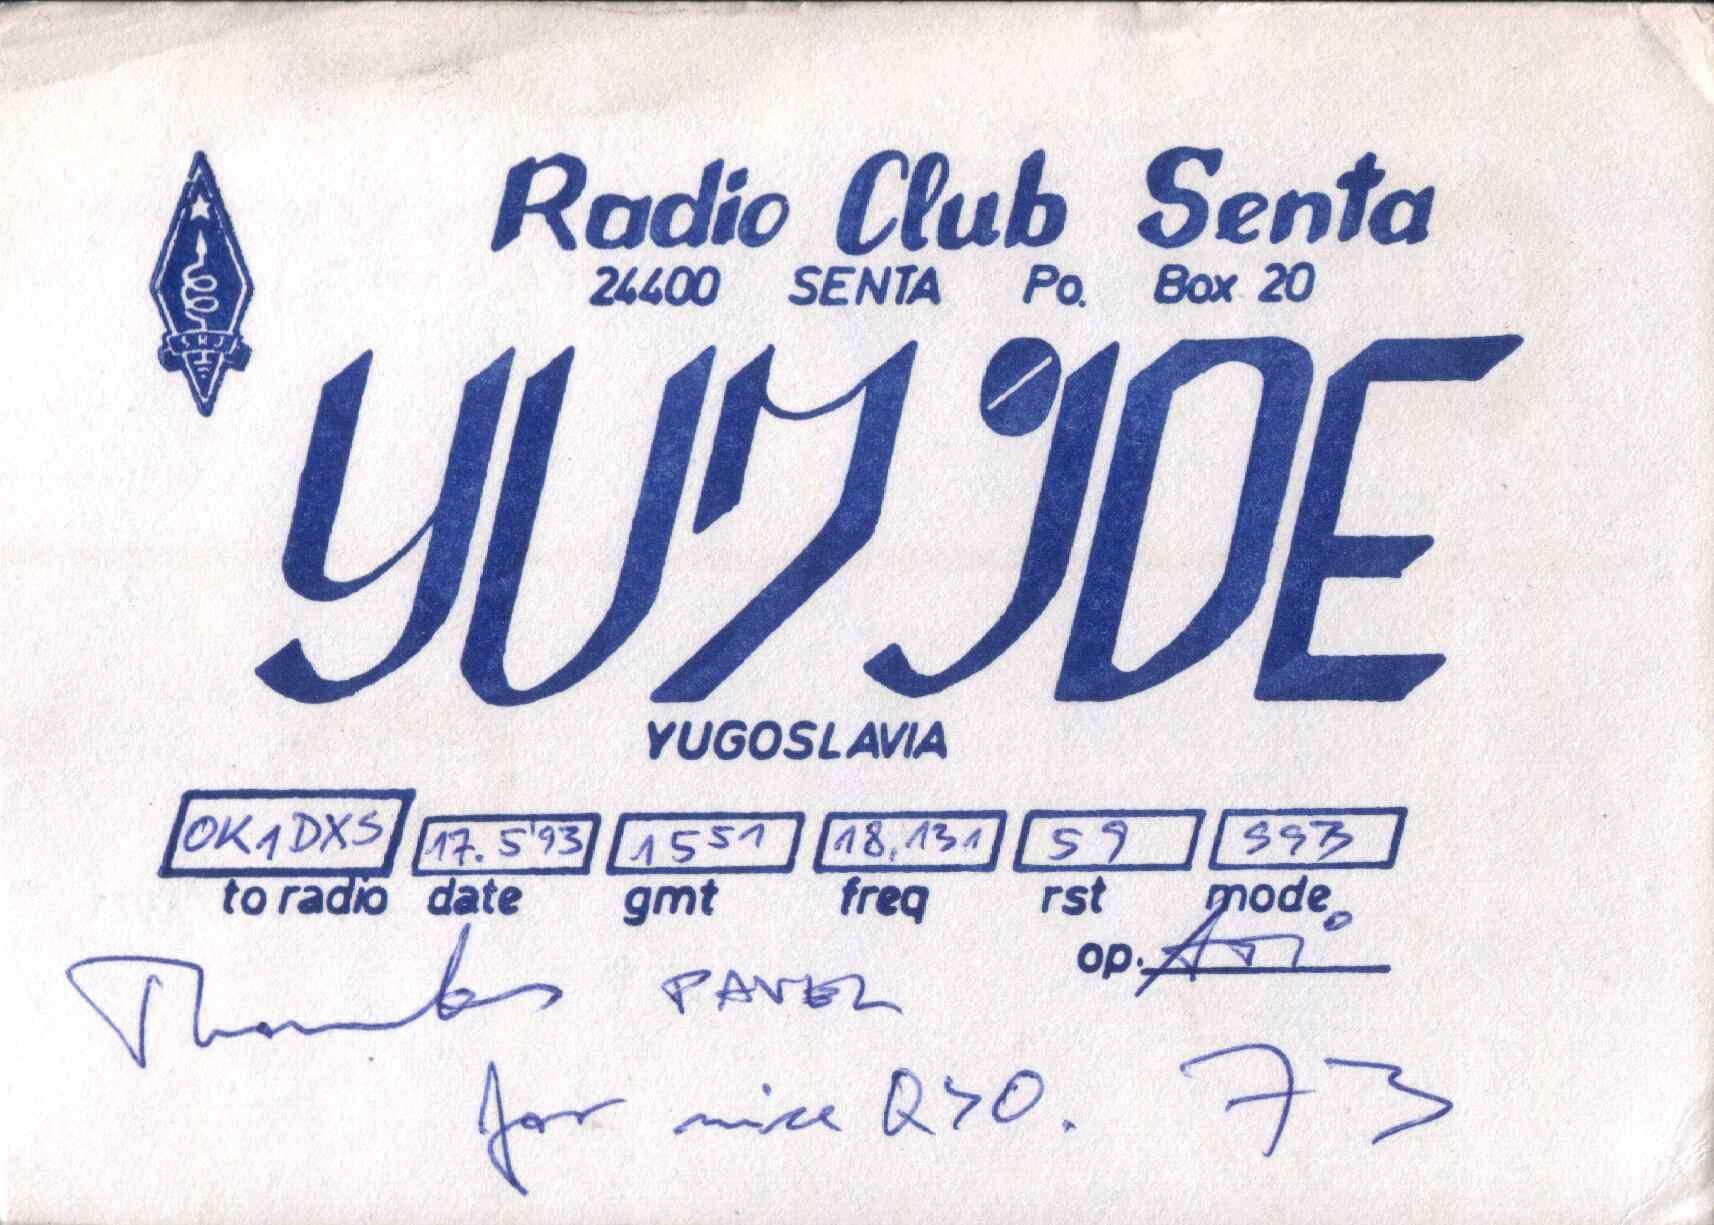 Radio Club Senta
24400 SENTA Po. Box 20
SRJ
YU7JDE
YUGOSLAVIA
OK1DXS 17.5'93 1551 18,131 59 SSB
to radio date gmt freq rst mode
op.
Thanks PAVEL
for nice QSO. 73